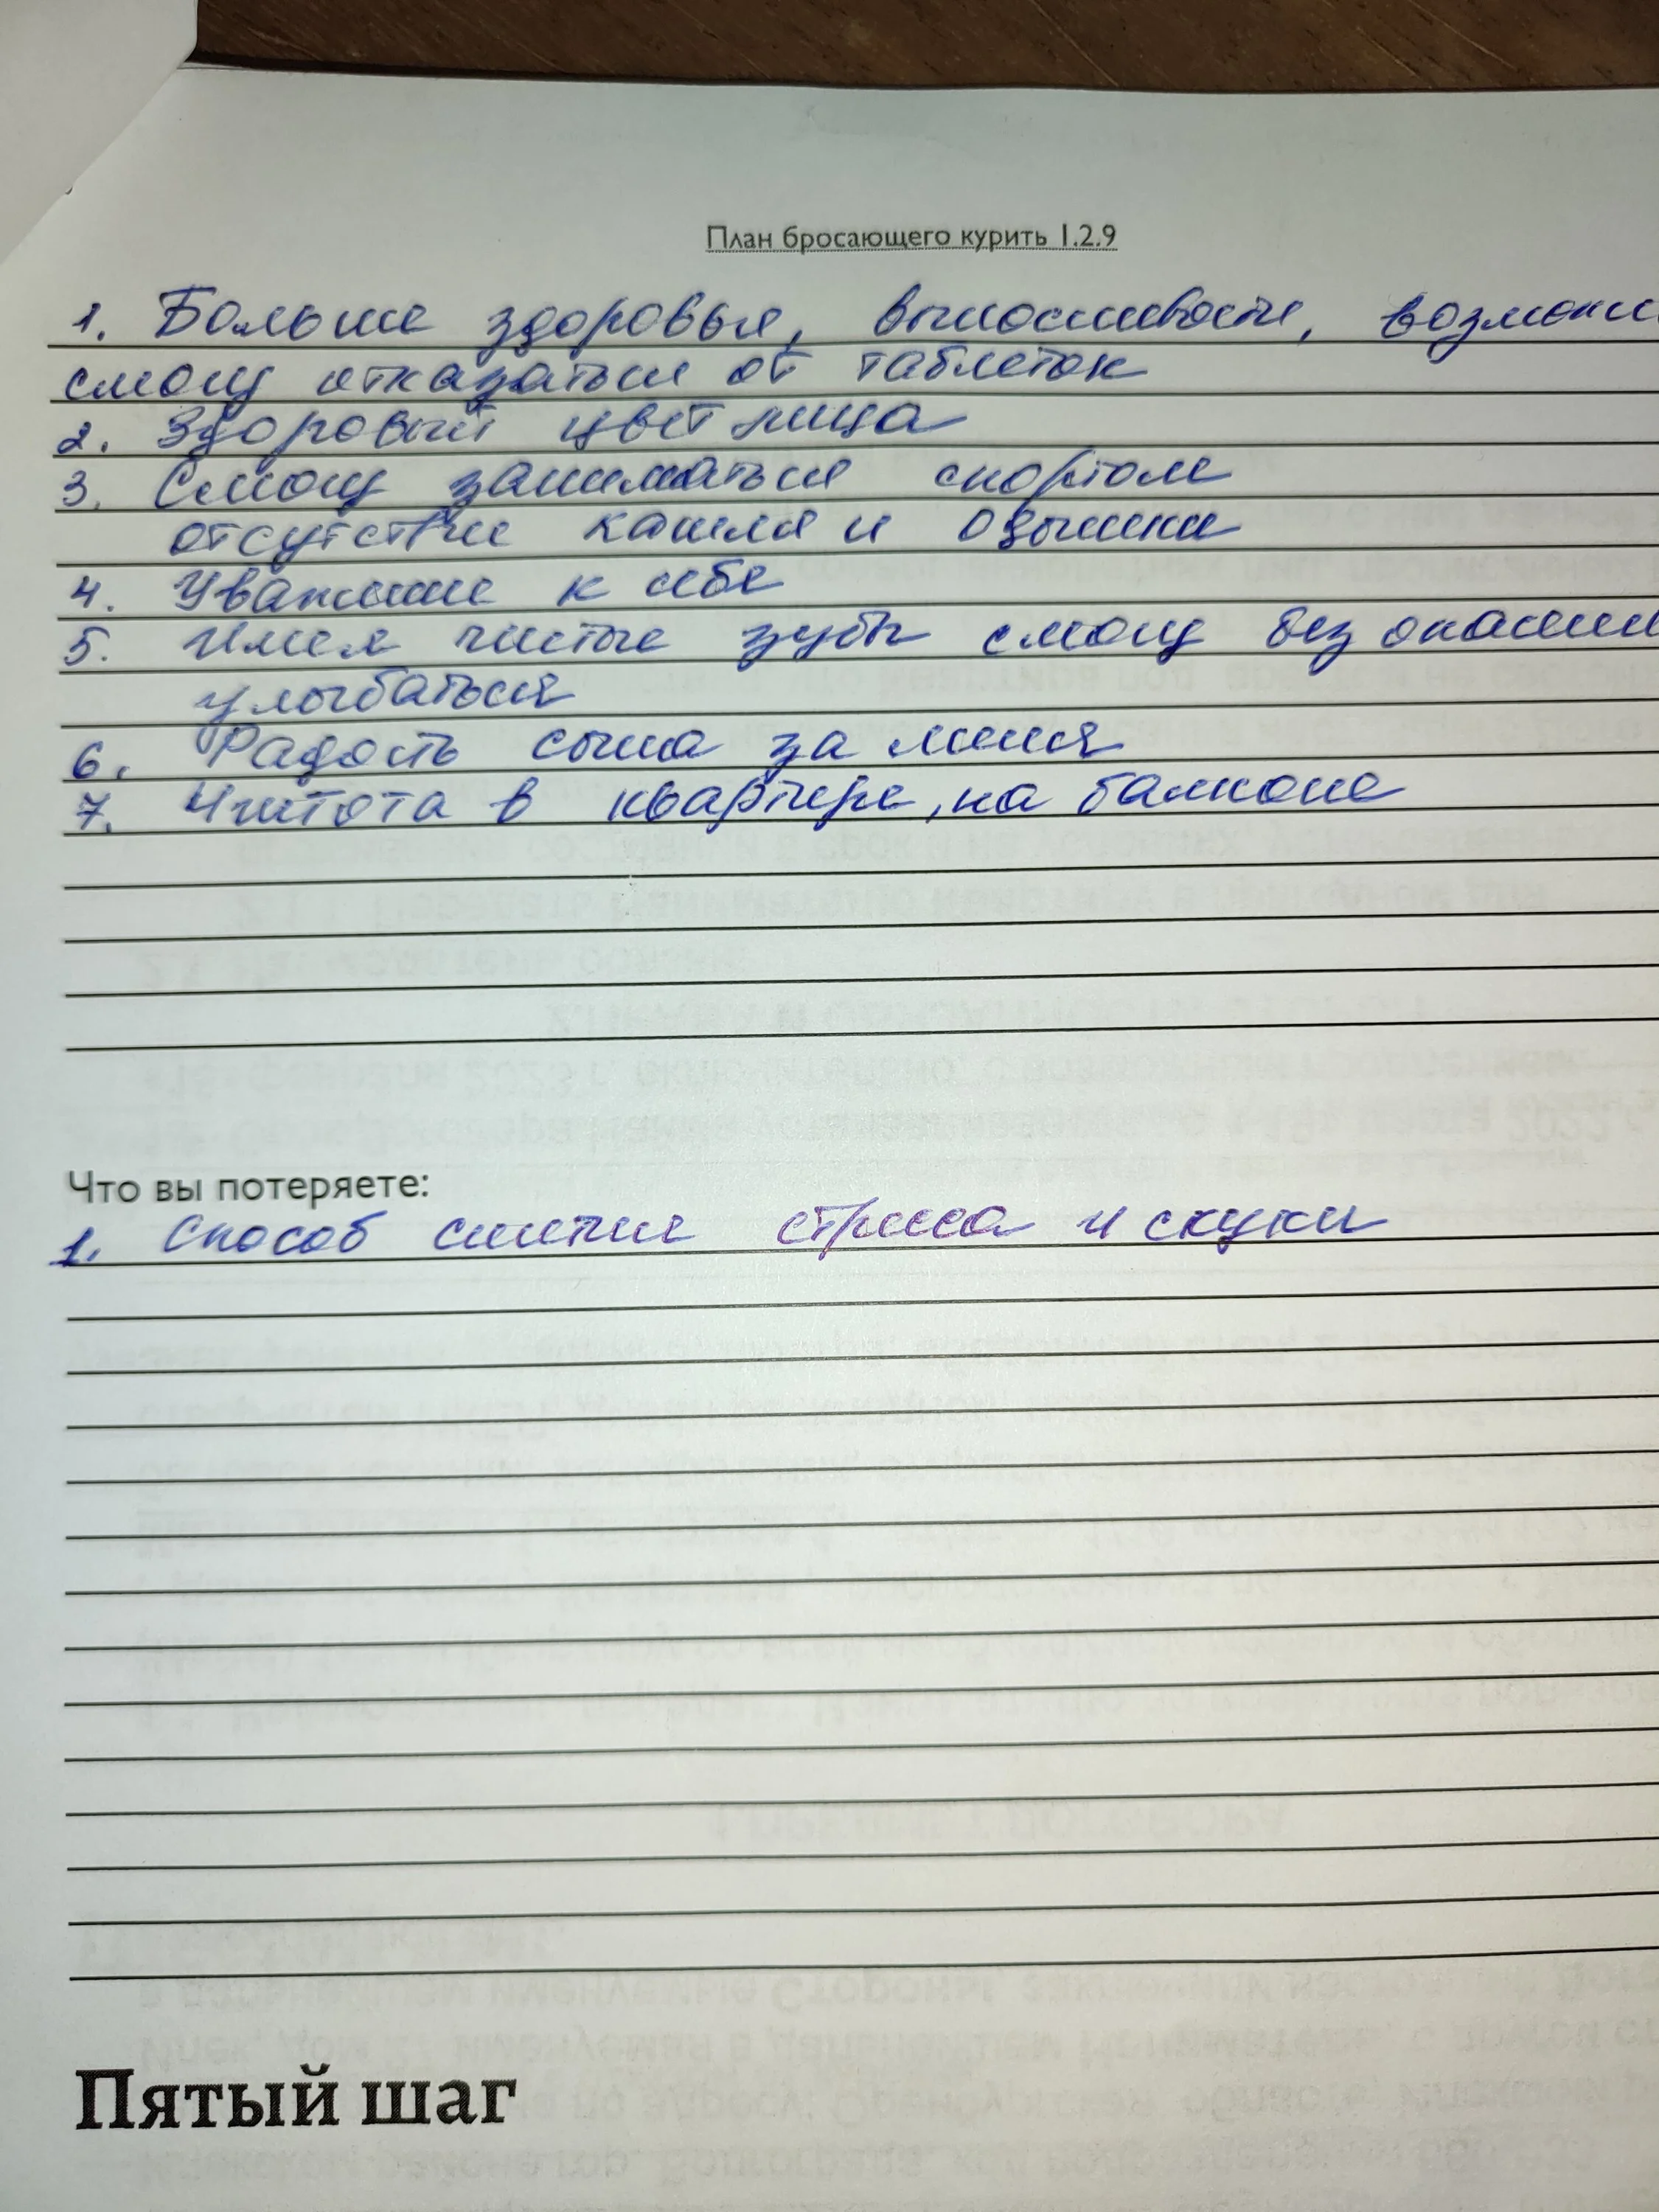 План бросающего курить 1.2.9
1. Больше здоровья, выносливости, возможно
смогу отказаться от таблеток
2. Здоровый цвет лица
3. Смогу заниматься спортом
отсутствие кашля и одышки
4. Уважение к себе
5. Имея чистые зубы смогу без
улыбаться
6. Радость сына за меня
7. Чистота в квартире, на балконе
Что вы потеряете:
1. Способ снятия стресса и скуки
Пятый шаг